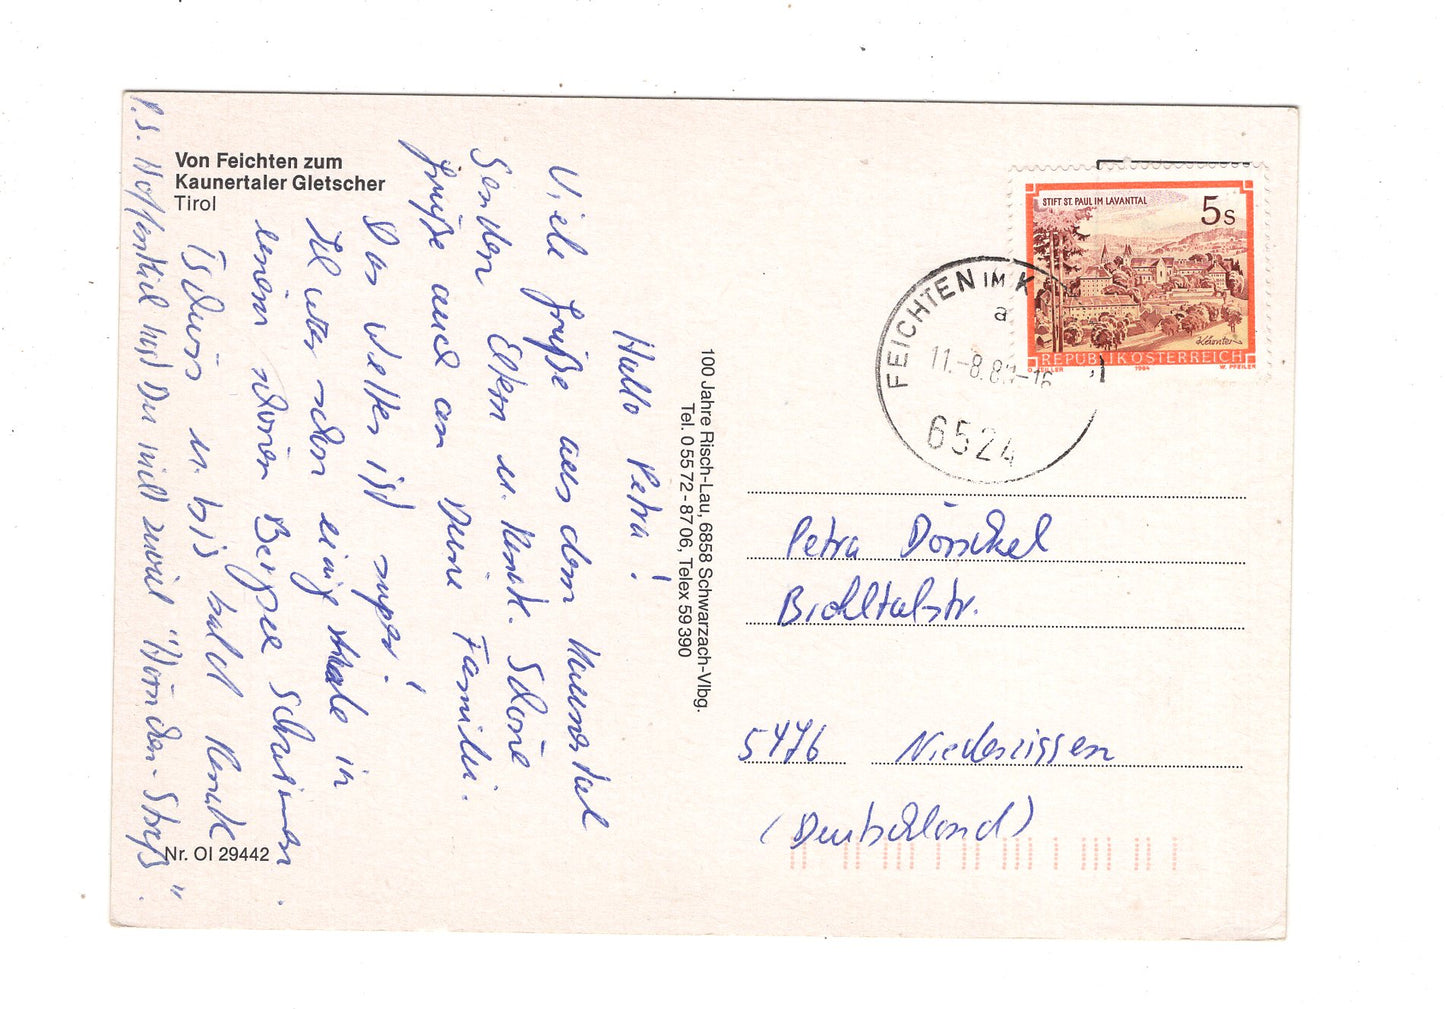 Von Feichten zum
Kaunertaler Gletscher
Tirol
Hallo Petra!
Viele Grüße aus dem Kaunertal
senden Eltern u. Renate. Schöne
Grüße auch an Deine Familie.
Das Wetter ist super!
Ich war schon einige Male in
einem schönen Bergsee schwimmen.
Tschüß u. bis bald Renate
P.S. Hoffentlich hast Du nicht zuviel "Hörnchen-Streß".
Nr. OI 29442
100 Jahre Risch-Lau, 6858 Schwarzach-Vlbg.
Tel. 0 55 72 - 87 06, Telex 59 390
STIFT ST. PAUL IM LAVANTTAL
5s
REPUBLIK ÖSTERREICH
O. ZEILLER 1984 W. PFEILER
FEICHTEN IM K
a
11.-8.8
6524
Petra Dörickel
Bichltalstr.
5476 Niederzissen
(Deutschland)